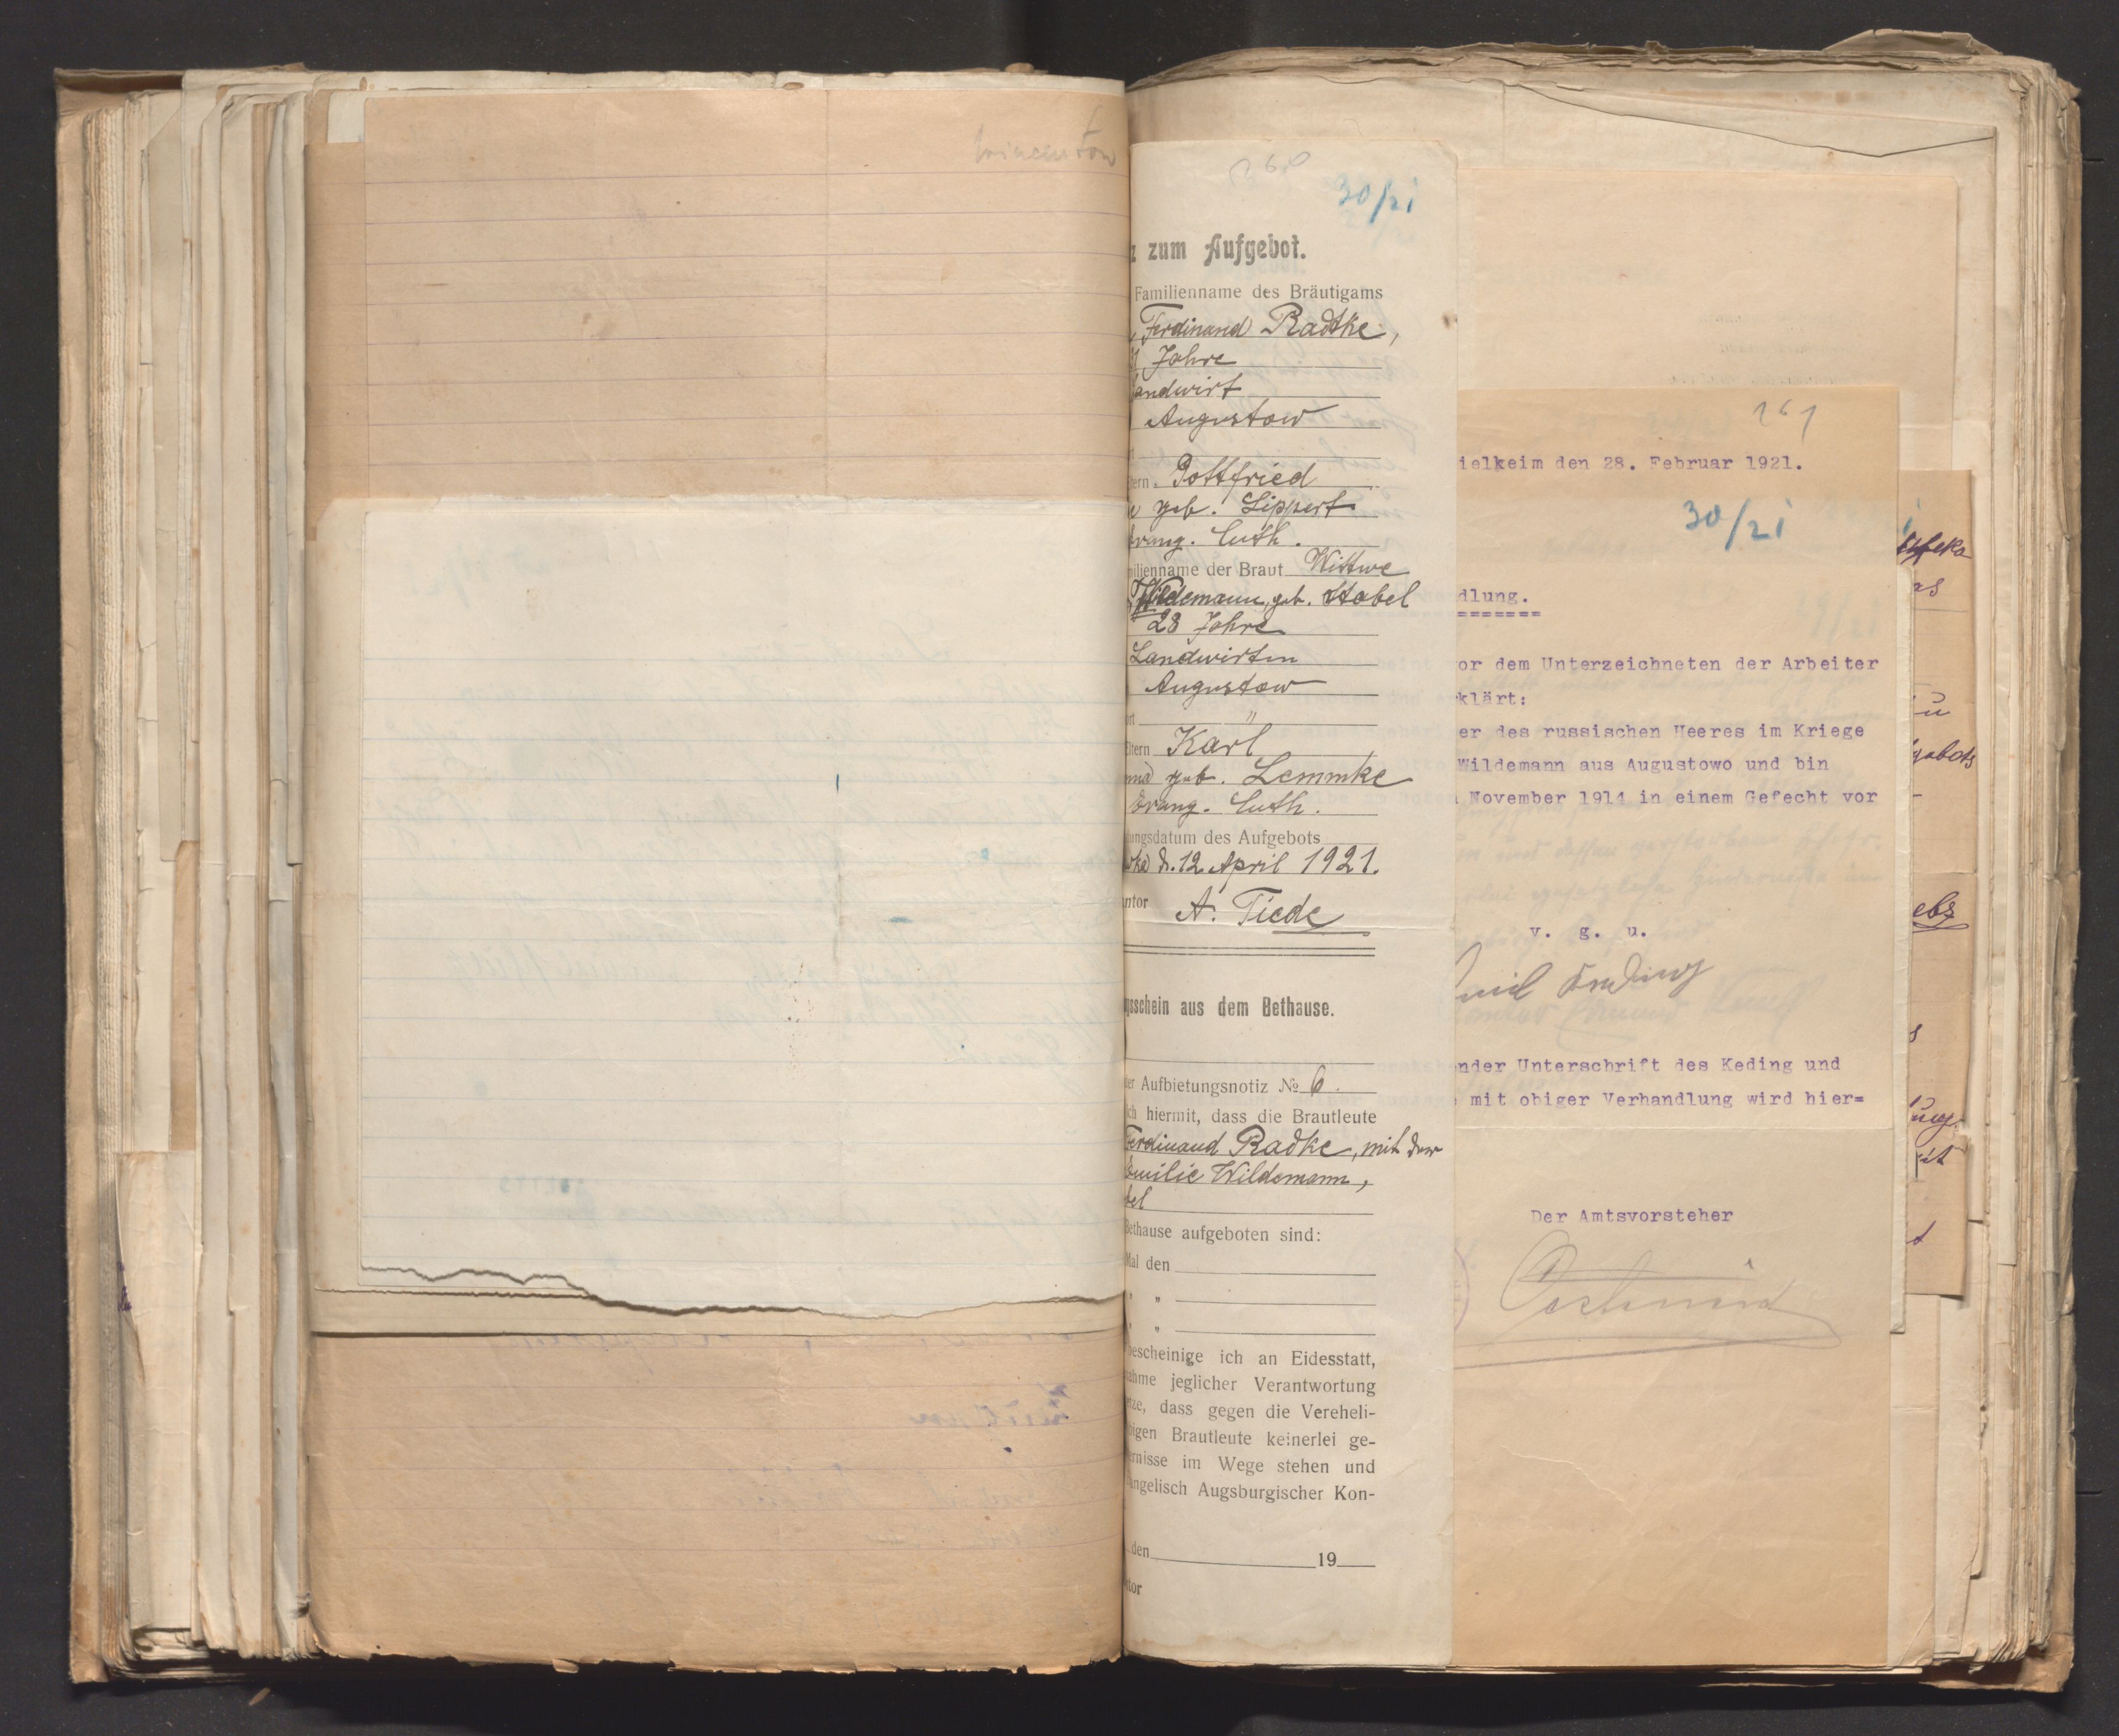 30/21
z zum Aufgebot.
Familienname des Bräutigams
Ferdinand Radtke,
Jahre
andwirt
Augustow
ern Gottfried
geb. Lippert
vang. luth.
milienname der Braut Wittwe
Wildemann, geb. Habel
28 Jahre
Landwirtin
Augustow
rt "
Eltern Karl
geb. Lemmke
Evang. luth.
ungsdatum des Aufgebots
d. 12. April 1921.
ntor A. Tiede
gsschein aus dem Bethause.
er Aufbietungsnotiz № 6.
ch hiermit, dass die Brautleute
Ferdinand Radke, mit der
Emilie Wildemann,
bel
Bethause aufgeboten sind:
Mal den
" "
" "
bescheinige ich an Eidesstatt,
ahme jeglicher Verantwortung
etze, dass gegen die Vereheli-
bigen Brautleute keinerlei ge-
ernisse im Wege stehen und
angelisch Augsburgischer Kon-
den 19
tor
161
ielkeim den 28. Februar 1921.
30/21
dlung.
or dem Unterzeichneten der Arbeiter
klärt:
er des russischen Heeres im Kriege
Wildemann aus Augustowo und bin
November 1914 in einem Gefecht vor
v. g. u.
nder Unterschrift des Keding und
mit obiger Verhandlung wird hier=
Der Amtsvorsteher